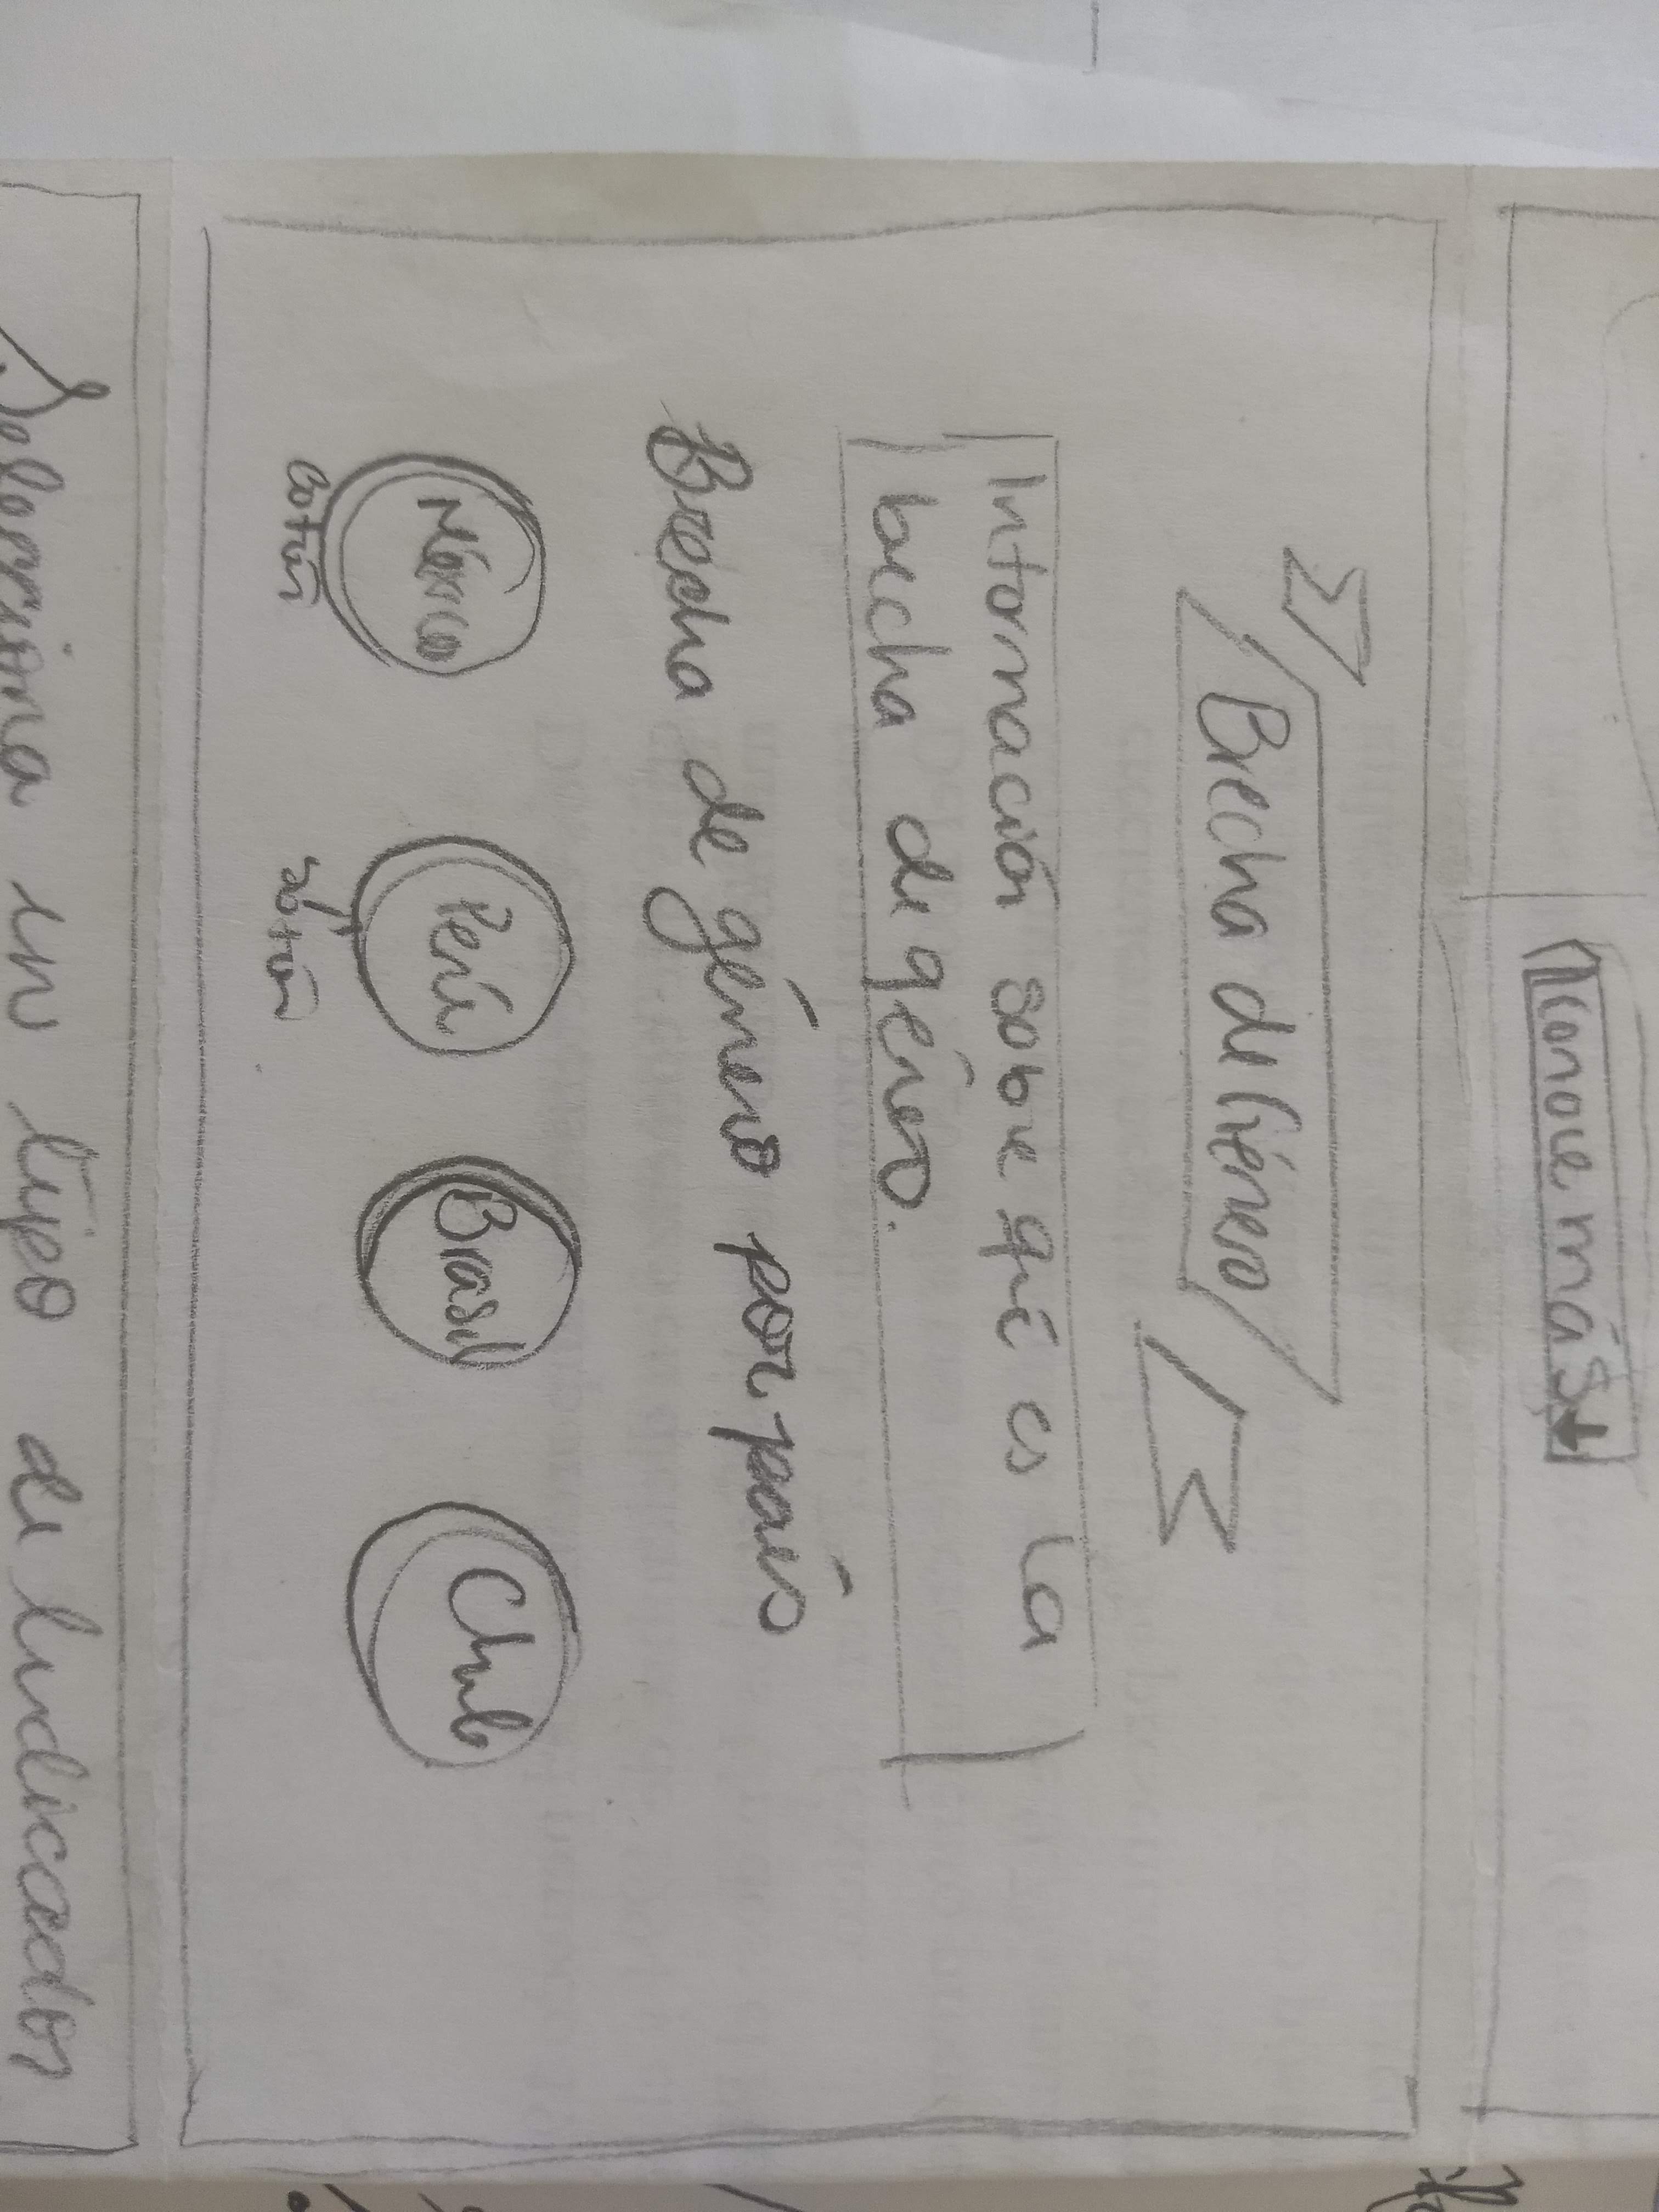 Conoce más
Brecha de Género
Información sobre qué es la
brecha de género.
Brecha de género por país
México Perú Brasil Chile
botón botón
Selecciona un tipo de Indicador